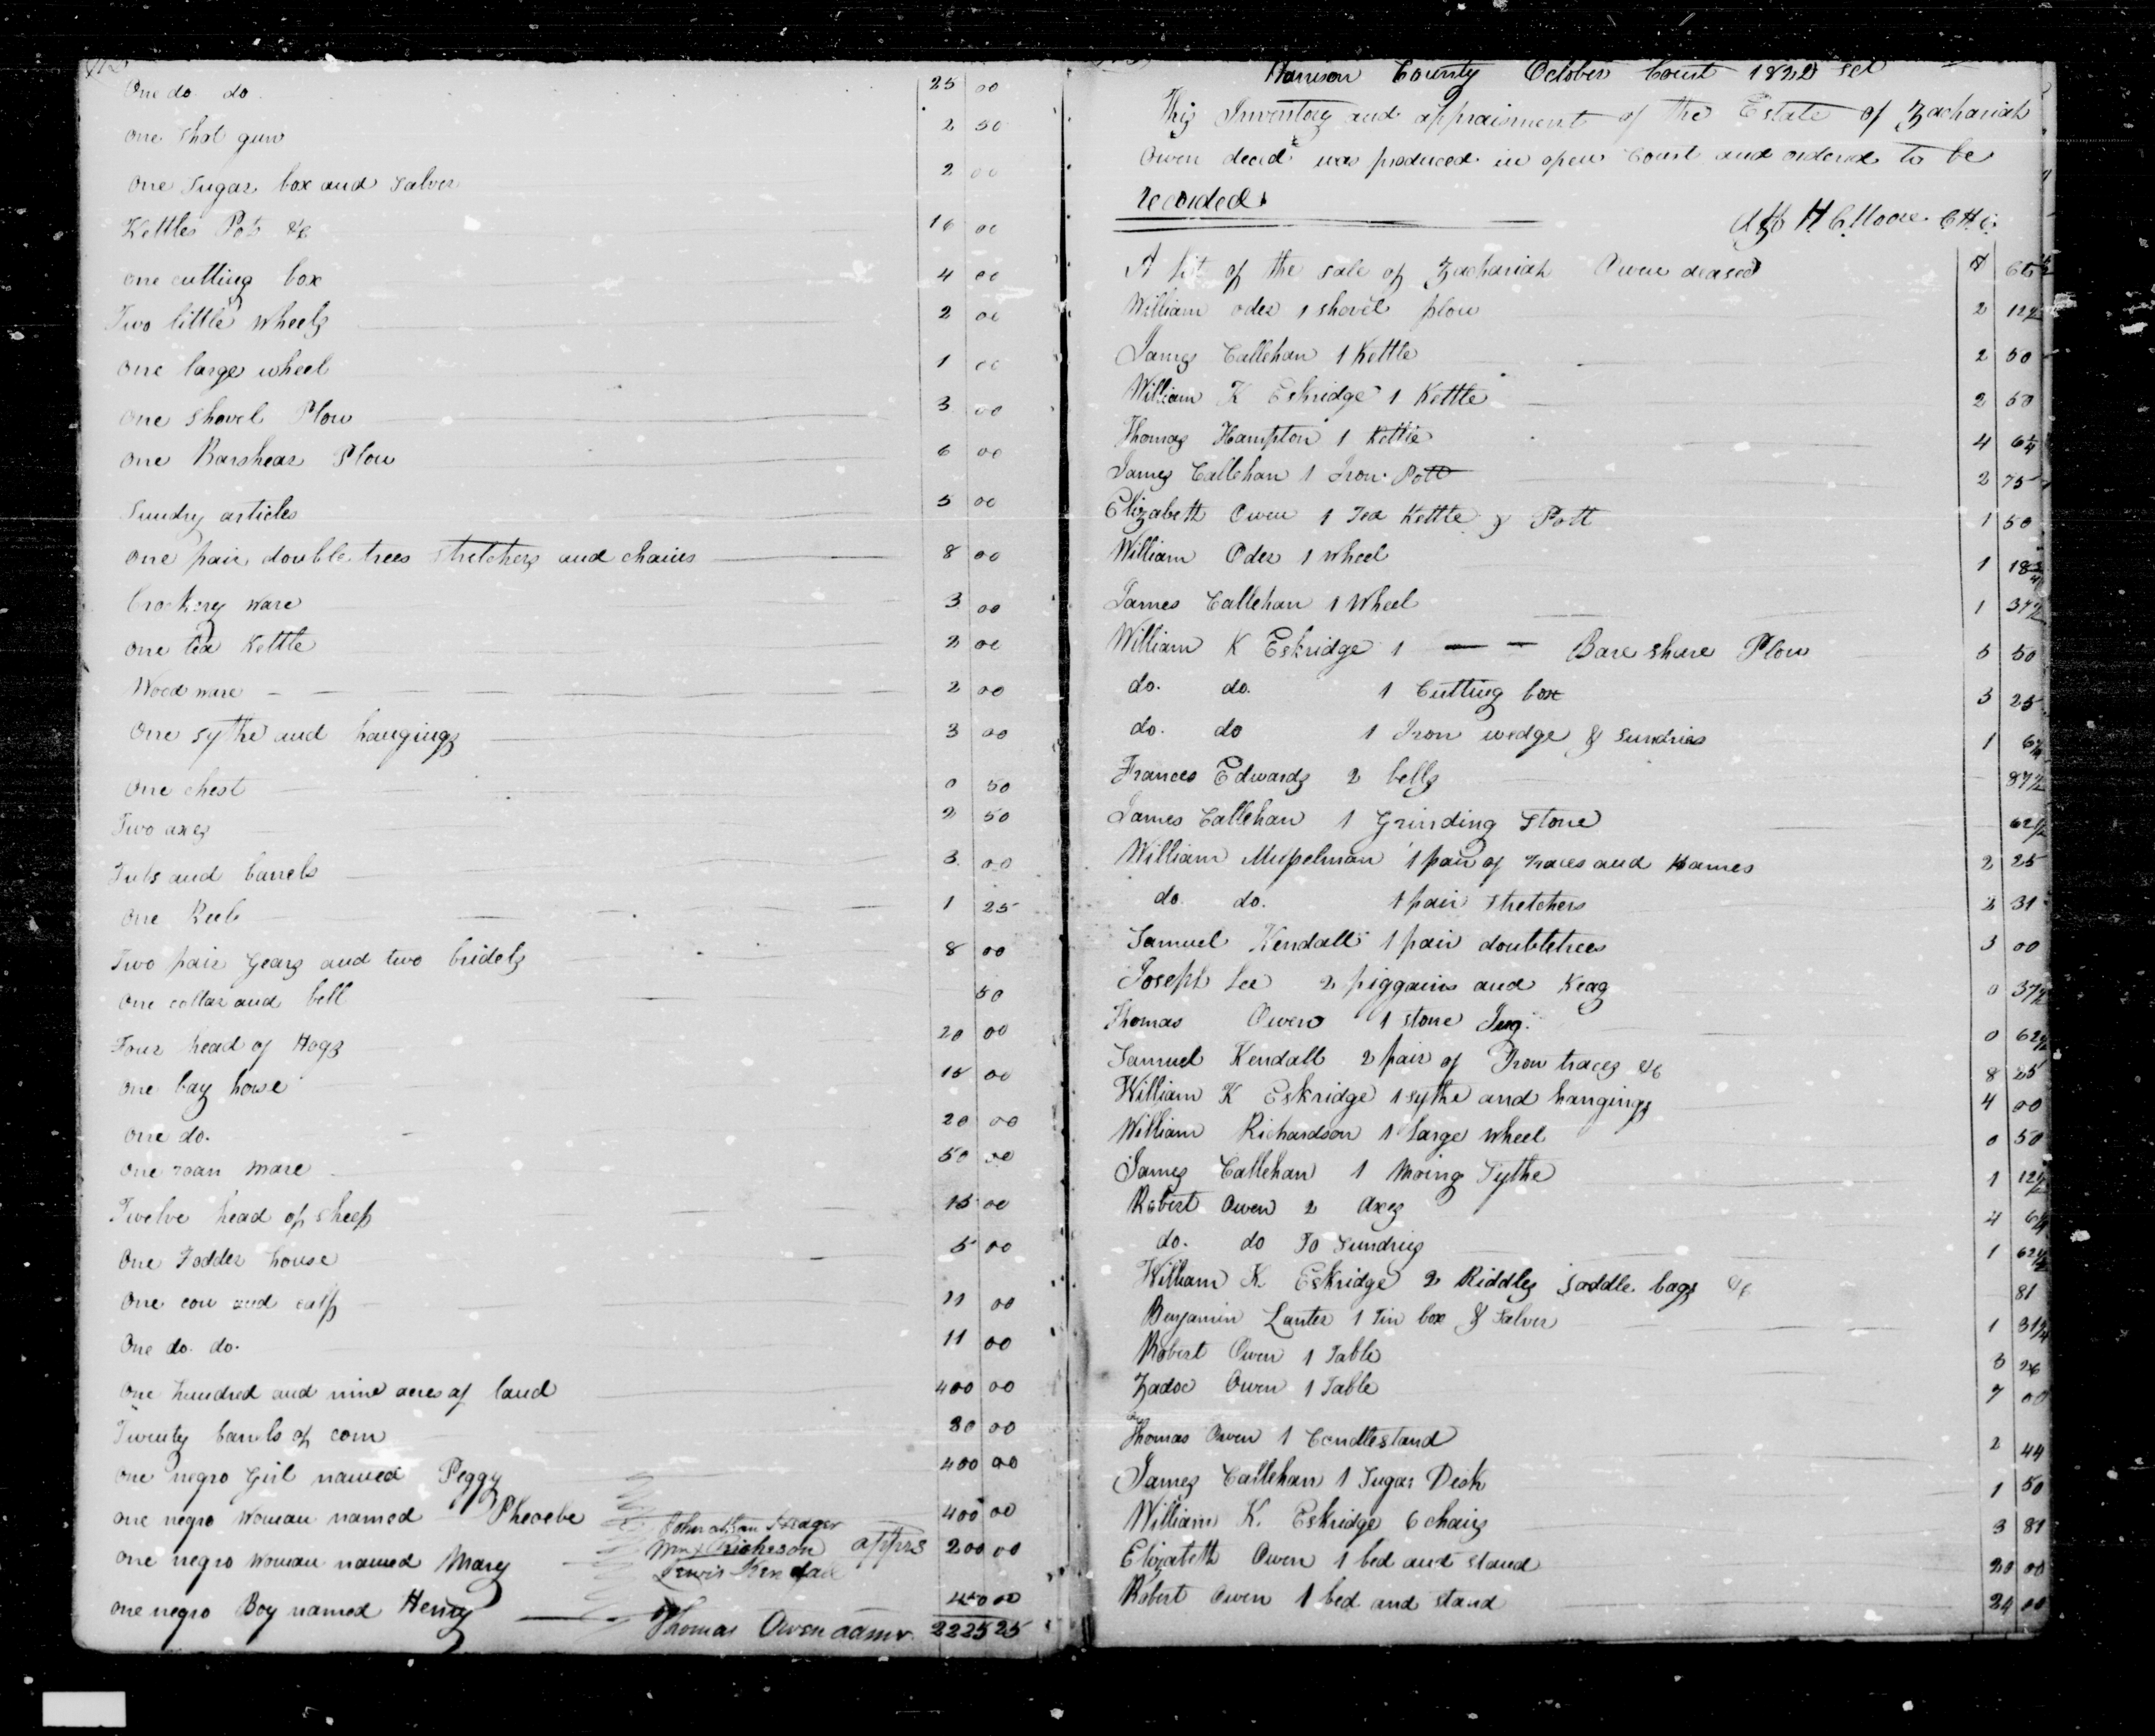 One do do 25 00
one shot gun 2 50
one Sugar box and Salver 2 00
Kettles Pots &c 16 00
one cutting box 4 00
Two little wheels 2 00
one large wheel 1 00
one shovel Plow 3 00
one Barshear Plow 6 00
Sundry articles 5 00
one pair double trees stretchers and chains 8 00
Crockery ware 3 00
one tea Kettle 2 00
Wood ware 2 00
One sythe and hangings 3 00
One chest 0 50
Two axes 2 50
Tubs and barrels 3 00
One Reel 1 25
Two pair Gears and two bridels 8 00
One collar and bell 50
Four head of Hogs 20 00
One bay horse 15 00
one do. 20 00
one roan mare 50 00
Twelve head of sheep 15 00
One Fodder house 5 00
One cow and calf 11 00
One do. do. 11 00
One hundred and nine acres of land 400 00
Twenty barrels of corn 00
one negro Girl named Peggy 400 00
one negro Woman named Phoebe 400 00
one negro Woman named Mary 200 00
one negro Boy named Henry 00
apprs
Lewis Kendall
Thomas Owen admr. 2225 25
Harrison County October Court 1822 Sct
This Inventory and appraisment of the Estate of Zachariah
Owen decd was produced in open Court and ordered to be
recorded.
H C Moore C H C.
A list of the sale of Zachariah Owen deased
William oder 1 shovel plow 2 12½
James Callehan 1 Kettle 2 50
William K Eskridge 1 Kettle 2 50
Thomas Hampton 1 Kettle 4 6¼
James Callehan 1 Iron Pott 2 75
Elizabeth Owen 1 Tea Kettle & Pott 1 50
William Oder 1 wheel 1 18¾
James Callehan 1 Wheel 1 37½
William K Eskridge 1 — — Bare share Plow 5 50
do. do. 1 Cutting box 3 25
do. do 1 Iron wedge & sundries 1 6¼
Frances Edwards 2 bells 87½
James Callehan 1 Grinding Stone 62½
William Musselman 1 pair of traces and Hames 2 25
do. do. 1 pair stretchers 2 31
Samuel Kendall 1 pair doubletrees 3 00
Joseph Lee 2 piggains and Keag 0 37½
Thomas Owen 1 stone Jug. 0 62½
Samuel Kendall 2 pair of Iron traces &c 8 25
William K Eskridge 1 sythe and hangings 4 00
William Richardson 1 large wheel 0 50
James Callehan 1 Moing Sythe 1 12½
Robert Owen 2 Axes 4 6¼
do. do To Sundries 1 62½
William K Eskridge 2 Riddles saddle bags &c 81
Benjamin Lanter 1 Tin box & Salver 1 31¼
Robert Owen 1 Table 3 26
Zadoc Owen 1 Table 7 00
Thomas Owen 1 Candlestand 2 44
James Callehan 1 Sugar Desk 1 50
William K. Eskridge 6 chairs 3 81
Elizabeth Owen 1 bed and stand 20 00
Robert Owen 1 bed and stand 24 00